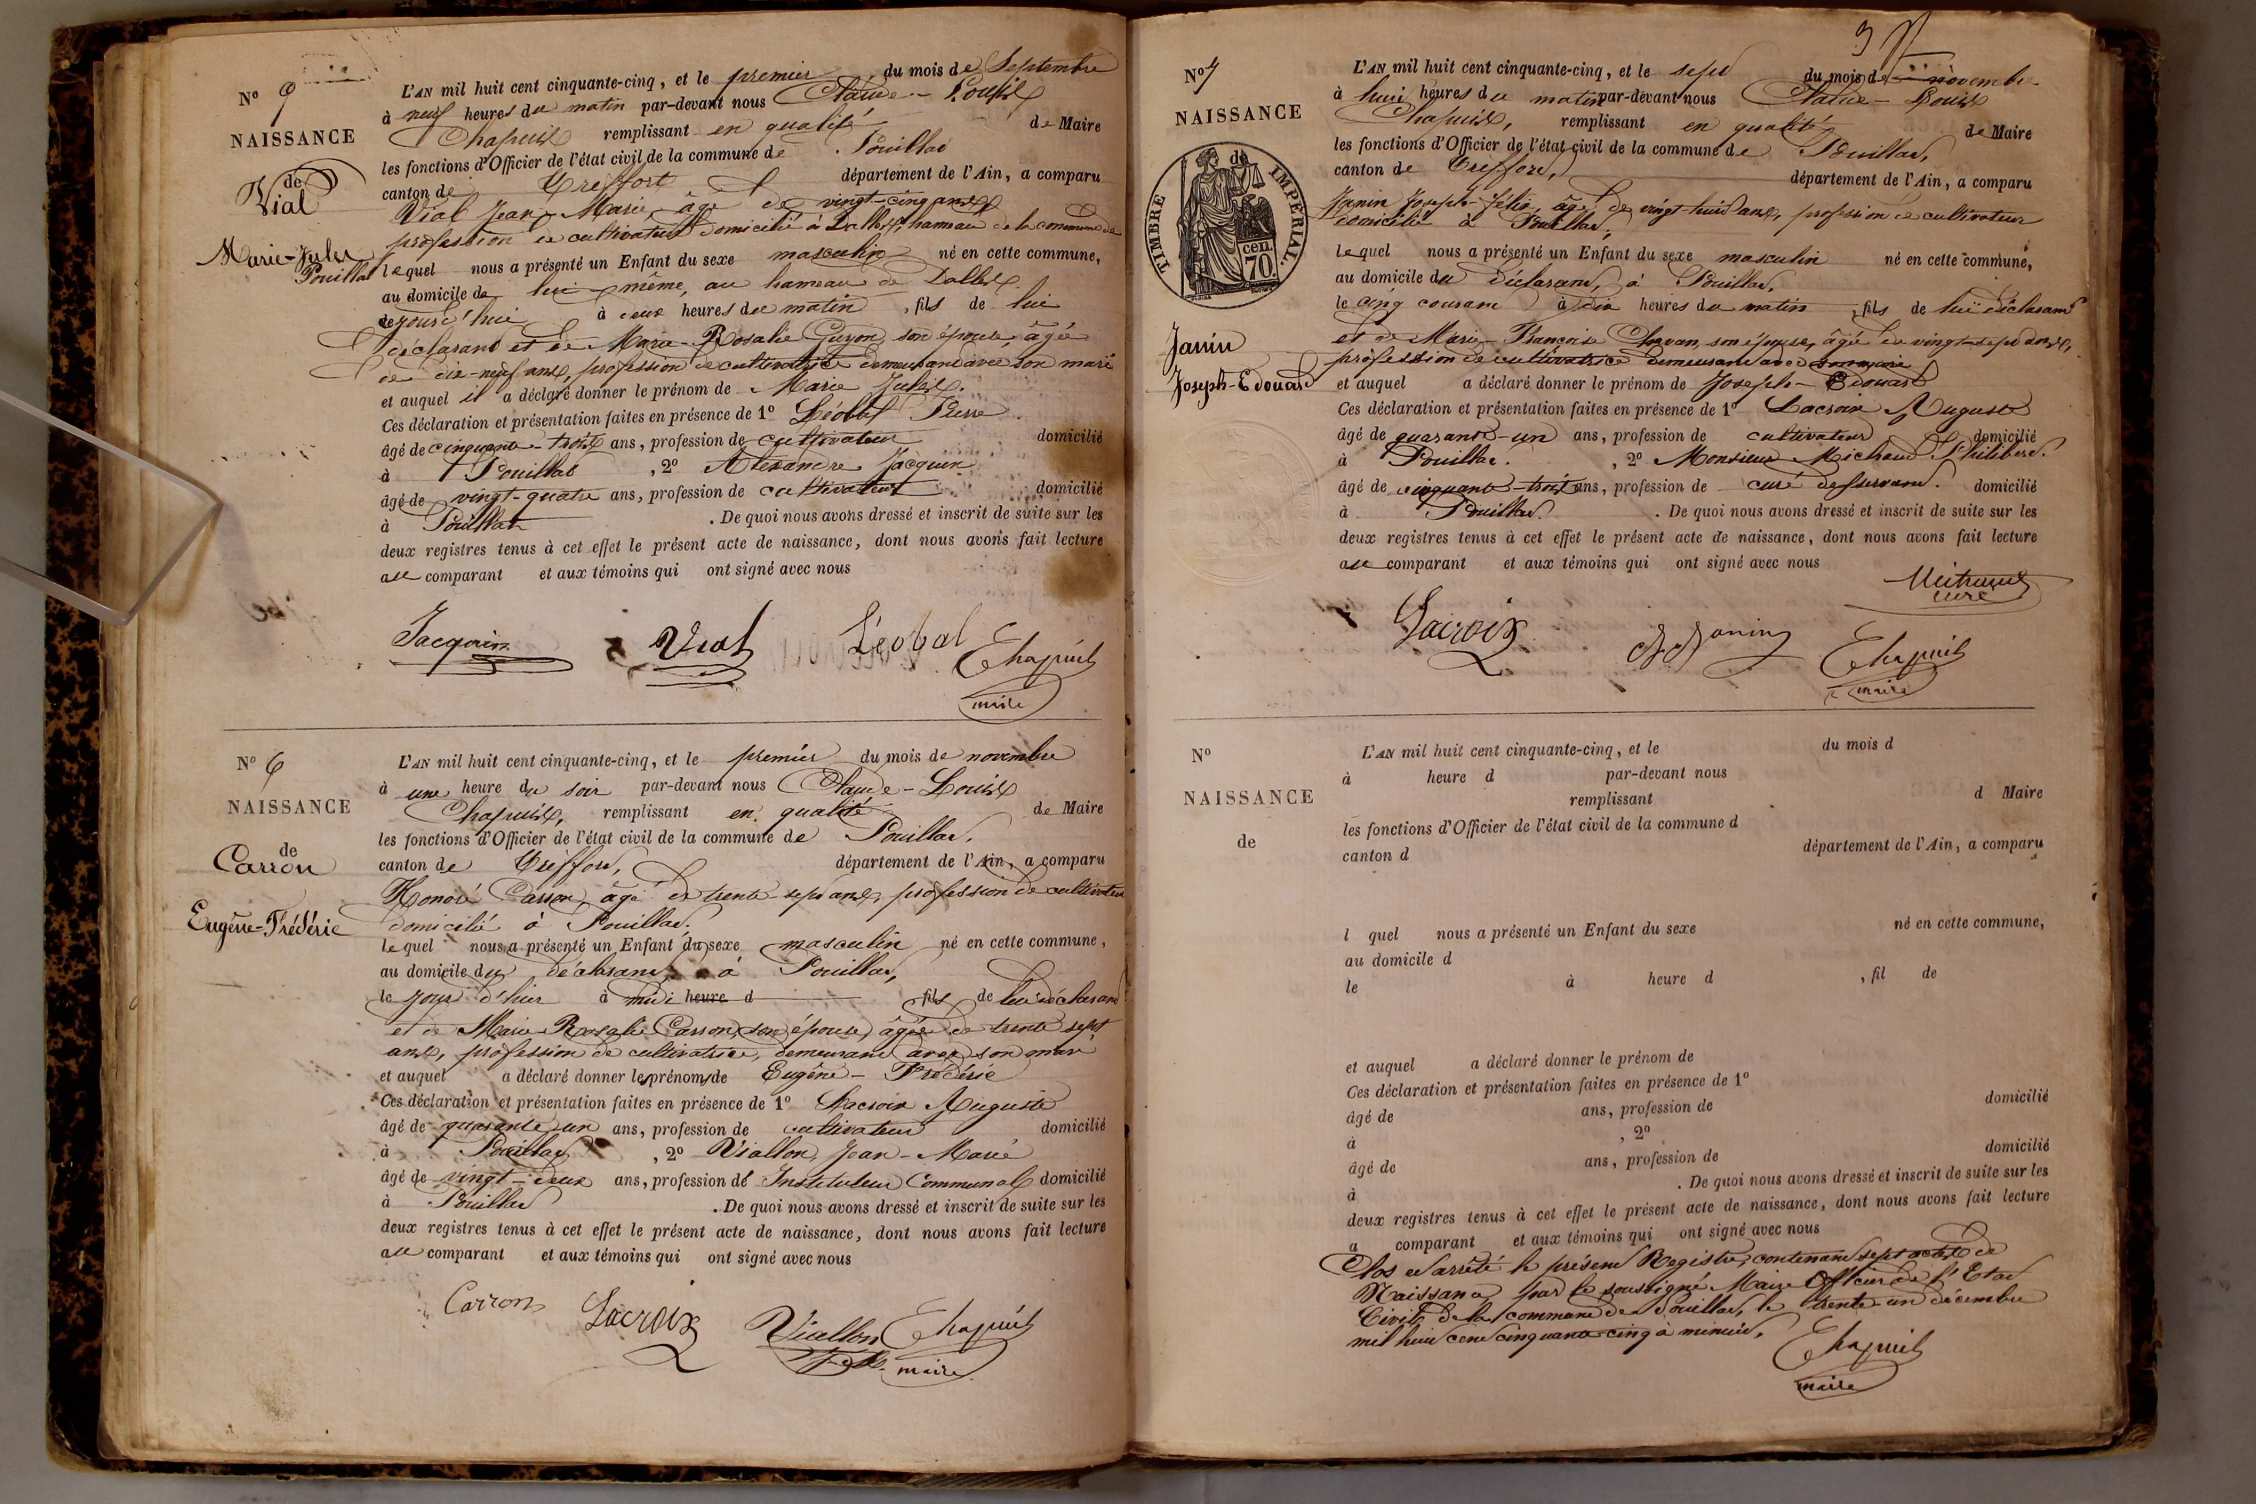 N° 5
NAISSANCE
de
Vial
Marie-Jules
Pouillat
L'AN mil huit cent cinquante-cinq, et le premier du mois de Septembre
à neuf heures du matin par-devant nous Claude-Louis
Chapuis remplissant en qualité de Maire
les fonctions d'Officier de l'état civil de la commune de Pouillat
canton de Treffort département de l'Ain, a comparu
Vial Jean-Marie, âgé de vingt-cinq ans
profession de cultivateur domicilié à Dalles, hameau de la commune de
lequel nous a présenté un Enfant du sexe masculin né en cette commune,
au domicile de lui-même, au hameau de Dalles
le jourd'hui à deux heures du matin, fils de lui
déclarant et de Marie-Rosalie Guyon son épouse, âgée
de dix-neuf ans, profession de cultivatrice demeurant avec son mari
et auquel il a déclaré donner le prénom de Marie Jules.
Ces déclaration et présentation faites en présence de 1° Léobal Pierre
âgé de cinquante-trois ans, profession de cultivateur domicilié
à Pouillat, 2° Alexandre Jacquin
âgé de vingt-quatre ans, profession de cultivateur domicilié
à Pouillat. De quoi nous avons dressé et inscrit de suite sur les
deux registres tenus à cet effet le présent acte de naissance, dont nous avons fait lecture
au comparant et aux témoins qui ont signé avec nous
Jacquin Vial Léobal Chapuis
maire
N° 6
NAISSANCE
de
Carron
Eugène-Frédéric
L'AN mil huit cent cinquante-cinq, et le premier du mois de novembre
à une heure du soir par-devant nous Claude-Louis
Chapuis, remplissant en qualité de Maire
les fonctions d'Officier de l'état civil de la commune de Pouillat,
canton de Treffort, département de l'Ain, a comparu
Honoré Carron, âgé de trente-sept ans, profession de cultivateur
domicilié à Pouillat.
lequel nous a présenté un Enfant du sexe masculin né en cette commune,
au domicile du déclarant à Pouillat,
le jour d'hier à midi heure d fils de lui déclarant
et de Marie Rosalie Carron, son épouse, âgée de trente sept
ans, profession de cultivatrice, demeurant avec son mari
et auquel a déclaré donner les prénoms de Eugène-Frédéric
Ces déclaration et présentation faites en présence de 1° Lacroix Auguste
âgé de quarante un ans, profession de cultivateur domicilié
à Pouillat, 2° Viallon, Jean-Marie
âgé de vingt-deux ans, profession de Instituteur Communal domicilié
à Pouillat. De quoi nous avons dressé et inscrit de suite sur les
deux registres tenus à cet effet le présent acte de naissance, dont nous avons fait lecture
au comparant et aux témoins qui ont signé avec nous
Carron Lacroix Viallon Chapuis
maire
3
N° 7
NAISSANCE
de
TIMBRE IMPÉRIAL.
cen.
70.
Janin
Joseph-Edouard
L'AN mil huit cent cinquante-cinq, et le sept du mois de novembre
à huit heures du matin par-devant nous Claude-Louis
Chapuis, remplissant en qualité de Maire
les fonctions d'Officier de l'état civil de la commune de Pouillat,
canton de Treffort, département de l'Ain, a comparu
Janin Joseph-Félix, âgé de vingt-huit ans, profession de cultivateur
domicilié à Pouillat,
lequel nous a présenté un Enfant du sexe masculin né en cette commune,
au domicile du déclarant, à Pouillat,
le cinq courant à dix heures du matin, fils de lui déclarant
et de Marie-Françoise son épouse, âgée de vingt-sept ans,
profession de cultivatrice demeurant avec son mari
et auquel a déclaré donner le prénom de Joseph-Edouard
Ces déclaration et présentation faites en présence de 1° Lacroix Auguste
âgé de quarante-un ans, profession de cultivateur domicilié
à Pouillat., 2° Monsieur Michaud Philibert.
âgé de cinquante-trois ans, profession de curé desservant. domicilié
à Pouillat. De quoi nous avons dressé et inscrit de suite sur les
deux registres tenus à cet effet le présent acte de naissance, dont nous avons fait lecture
au comparant et aux témoins qui ont signé avec nous
Michaud
curé
Lacroix Janin Chapuis
maire
N°
NAISSANCE
de
L'AN mil huit cent cinquante-cinq, et le du mois d
à heure d par-devant nous
remplissant d Maire
les fonctions d'Officier de l'état civil de la commune d
canton d département de l'Ain, a comparu
l quel nous a présenté un Enfant du sexe né en cette commune,
au domicile d
le à heure d , fil de
et auquel a déclaré donner le prénom de
Ces déclaration et présentation faites en présence de 1°
âgé de ans, profession de domicilié
à , 2°
âgé de ans, profession de domicilié
à . De quoi nous avons dressé et inscrit de suite sur les
deux registres tenus à cet effet le présent acte de naissance, dont nous avons fait lecture
a comparant et aux témoins qui ont signé avec nous
Clos et arrêté le présent Registre, contenant sept actes de
Naissance, par le soussigné Maire Officier de l'Etat
Civil de la commune de Pouillat, le trente-un décembre
mil huit cent cinquante-cinq à minuit.
Chapuis
maire